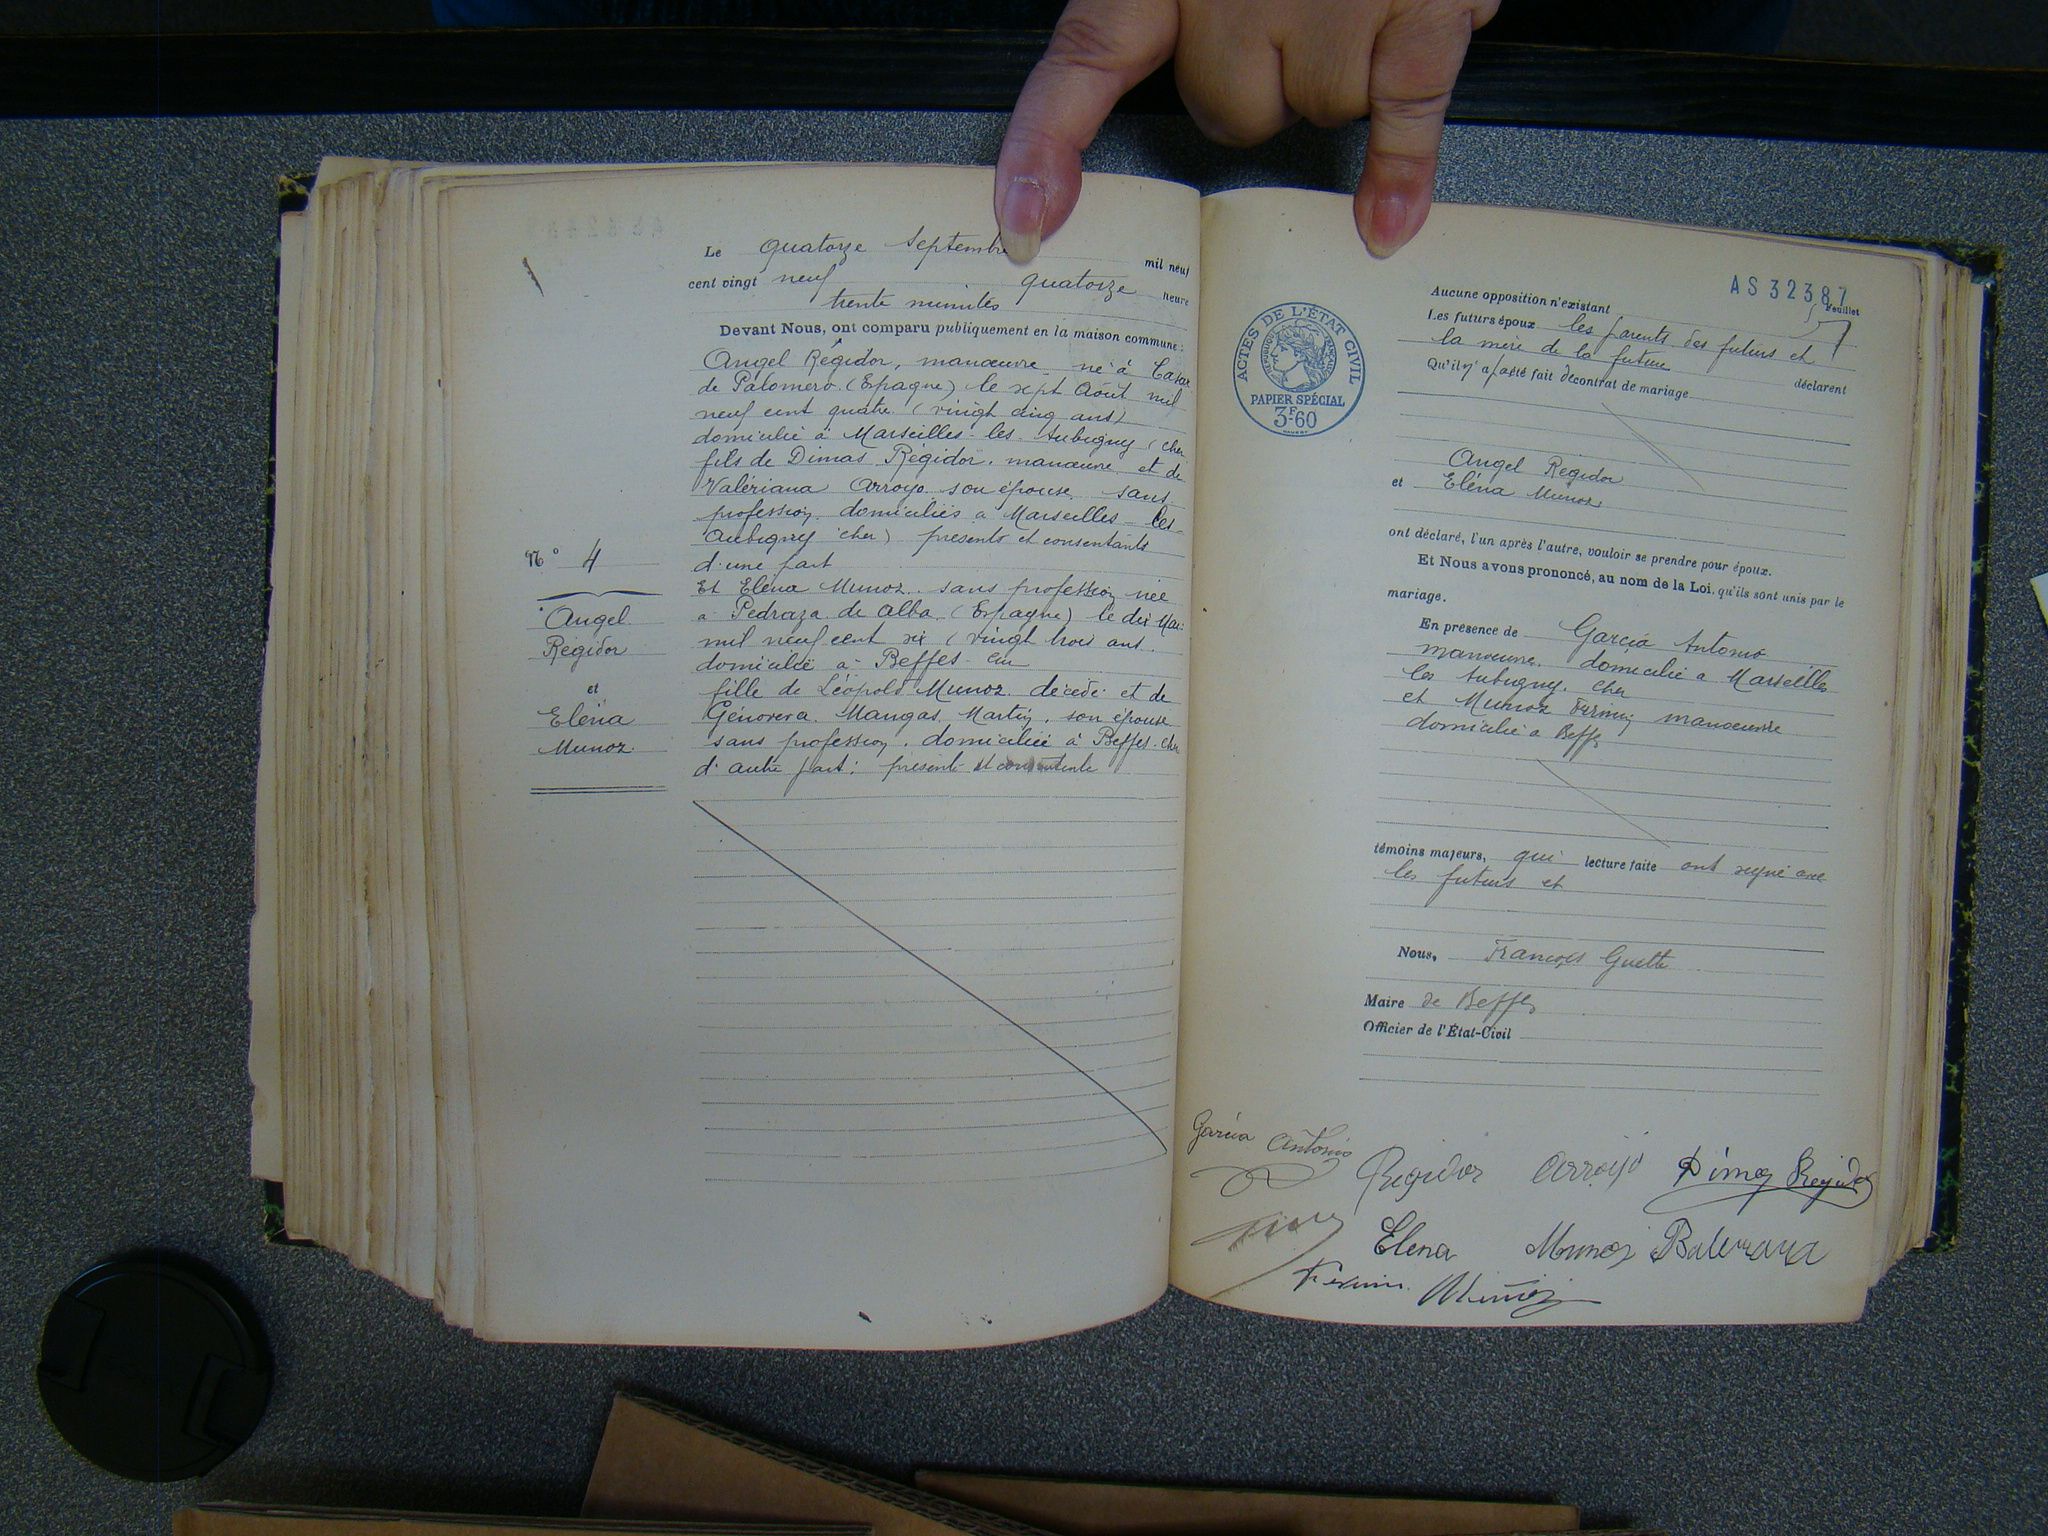 Le quatorze Septembre mil neuf
cent vingt neuf quatorze heure
trente minutes
Devant Nous, ont comparu publiquement en la maison commune:
Angel Régidor, manœuvre né à Casar
de Palomero (Espagne) le sept Août mil
neuf cent quatre (vingt cinq ans)
domicilié à Marseilles-les-Aubigny (cher
fils de Dimas Régidor, manœuvre et de
Valériana Arroyo son épouse sans
profession domiciliés à Marseilles-les-
Aubigny cher) présents et consentants
d'une part
Et Eléna Munoz sans profession née
à Pedraza de Alba (Espagne) le dix Mai
mil neuf cent six (vingt trois ans
domiciliée à Beffes cher
fille de Léopold Munoz décédé et de
Génovera Mangas Martin, son épouse
sans profession, domiciliée à Beffes-cher
d'autre part: présente et consentente
N° 4
Angel
Régidor
et
Eléna
Munoz
AS 32387
Feuillet
57
Aucune opposition n'existant
Les futurs époux les parents des futurs et
la mère de la future déclarent
Qu'il n'a pas été fait de contrat de mariage
ACTES DE L'ÉTAT CIVIL
RÉPUBLIQUE FRANÇAISE
PAPIER SPÉCIAL
3F60
Angel Régidor
et Eléna Munoz
ont déclaré, l'un après l'autre, vouloir se prendre pour époux.
Et Nous avons prononcé, au nom de la Loi, qu'ils sont unis par le
mariage.
En présence de Garcia Antonio
manœuvre, domicilié à Marseilles
les Aubigny. cher
et Munoz Firmin manoeuvre
domicilié à Beffes
témoins majeurs, qui lecture faite ont signé avec
les futurs et
Nous, François Guette
Maire de Beffes
Officier de l'État-Civil
Garcia Antonio
Régidor Arroyo Dimas Regidor
Elena Munoz Baleriana
Fermin Muñoz